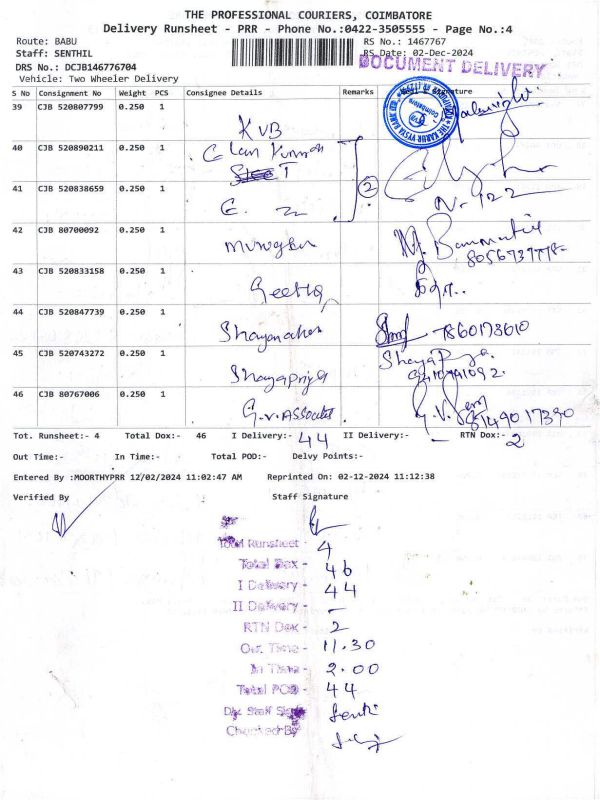 THE PROFESSIONAL COURIERS, COIMBATORE
Delivery Runsheet - PRR - Phone No.:0422-3505555 - Page No.:4
Route: BABU
RS No.: 1467767
Staff: SENTHIL
RS Date: 02-Dec-2024
DRS No.: DCJB146776704
DOCUMENT DELIVERY
Vehicle: Two Wheeler Delivery
S No Consignment No Weight PCS Consignee Details Remarks Signature
39 CJB 520807799 0.250 1
KVB
40 CJB 520890211 0.250 1
41 CJB 520838659 0.250 1
2
42 CJB 80700092 0.250 1
Murugan
8056737778-
43 CJB 520833158 0.250 1
Geetha
44 CJB 520847739 0.250 1
7860173610
45 CJB 520743272 0.250 1
Shayapriya
46 CJB 80767006 0.250 1
G.V. Associates
8149017390
Tot. Runsheet:- 4 Total Dox:- 46 I Delivery:- 44 II Delivery:- - RTN Dox:- 2
Out Time:- In Time:- Total POD:- Delvy Points:-
Entered By :MOORTHYPRR 12/02/2024 11:02:47 AM Reprinted On: 02-12-2024 11:12:38
Verified By Staff Signature
Total Runsheet - 4
Total Dox - 46
I Delivery - 44
II Delivery - -
RTN Dox - 2
Out Time - 11.30
In Time - 2.00
Total POD - 44
Dly Staff Sign -
Checked By